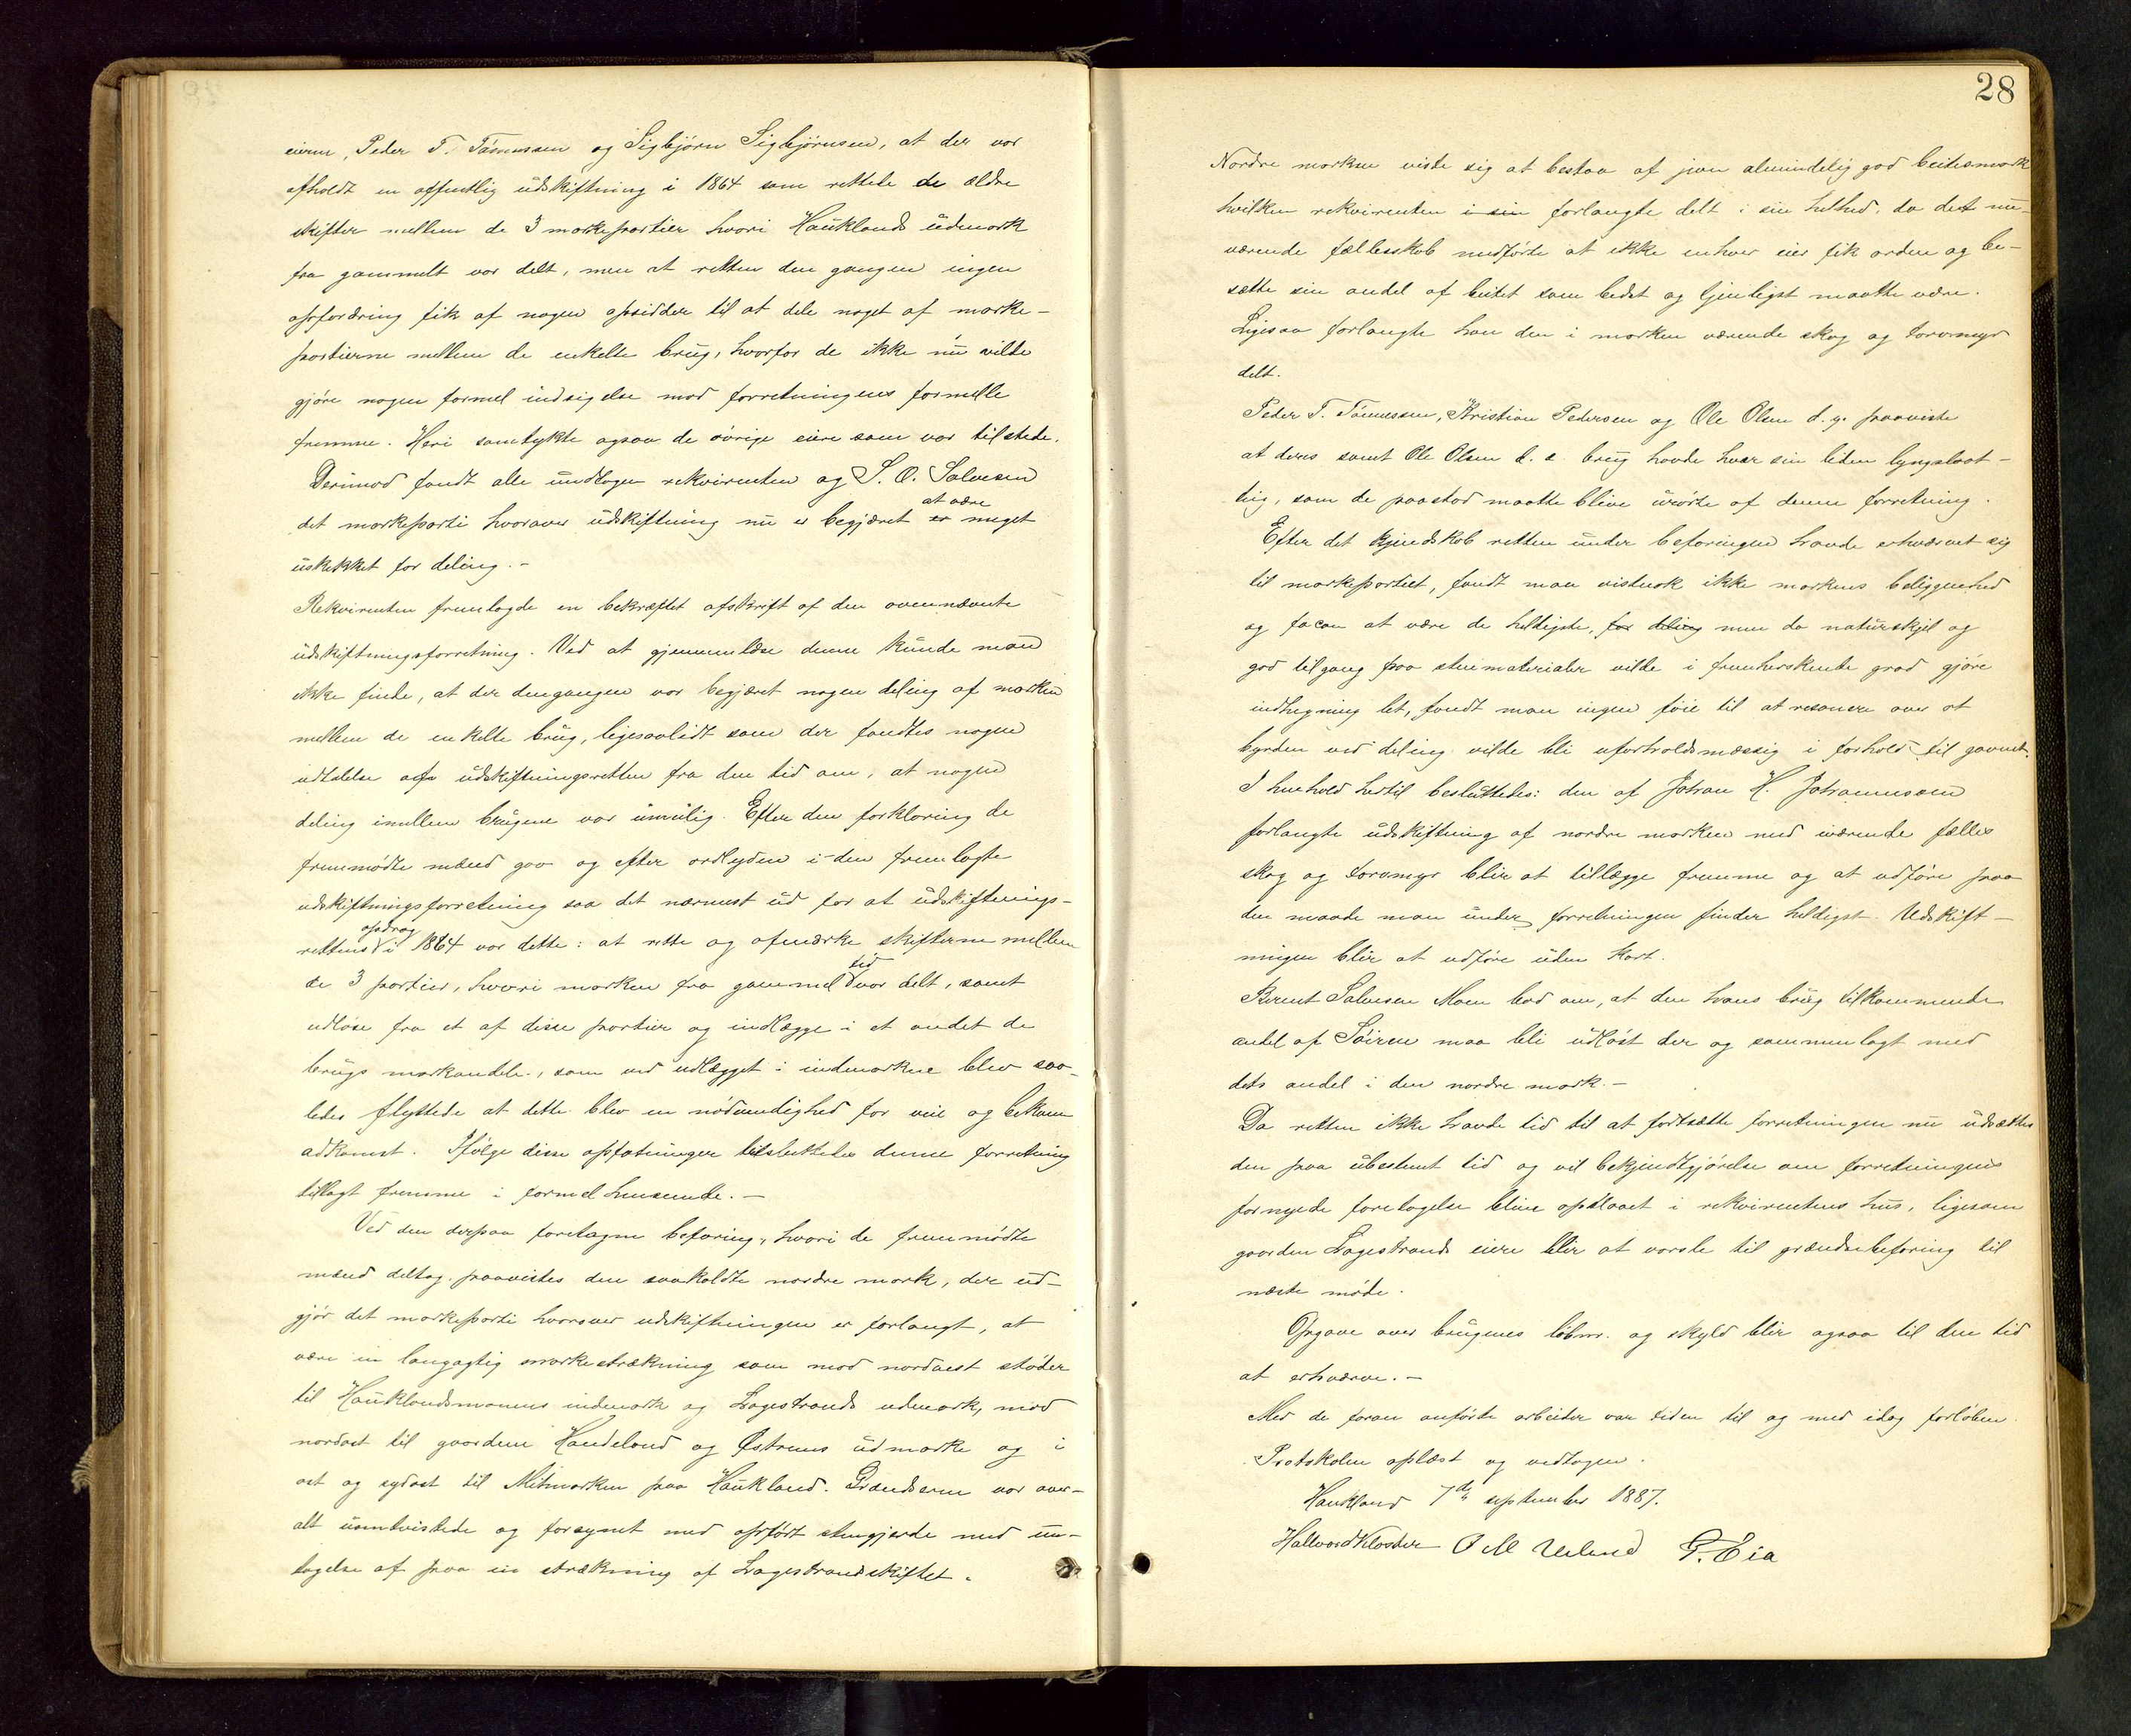 eierne, Peder T. Tönnessen og Sigbjörn Sigbjörnsen, at der var
afholdt en offentlig udskiftning i 1864 som rettede de ældre
skifter mellem de 3 markepartier hvori Hauklands udmark
fra gammelt var delt, men at retten den gangen ingen
opfordring fik af nogen opsidder til at dele noget af marke-
partierne mellem de enkelte brug, hvorfor de ikke nu vilde
gjöre nogen formel indsigelse mod forretningens formelle
fremme. Heri samtykte ogsaa de övrige eiere som var tilstede.
Derimod fandt alle undtagen rekvirenten og S. O. Salvesen
det markeparti hvorover udskiftning nu er begjæret er at være meget
uskikket for deling. -
Rekvirenten fremlagde en bekræftet afskrift af den ovennævnte
udskiftningsforretning. Ved at gjennemlæse denne kunde man
ikke finde, at der dengangen var begjæret nogen deling af marken
mellem de enkelte brug, ligesaalidt som der fandtes nogen
udtalelse af udskiftningsretten fra den tid om, at nogen
deling imellem brugene var umulig. Efter den forklaring de
fremmødte mænd gav og efter ordlyden i den fremlagte
udskiftningsforretning saa det nærmest ud for at udskiftnings-
rettens opdrag i 1864 var dette: at rette og afmærke skifterne mellem
de 3 partier, hvori marken fra gammel tid var delt, samt
udløse fra et af disse partier og indlægge i et andet de
brugs markandele, som ved udlægget i indmarkene blev saa-
ledes flyttede at dette blev en nødvendighed for veie og bekvem
adkomst. Ifölge disse opfatninger besluttedes denne forretning
tillagt fremme i formel henseende. -
Ved den derpaa foretagne befaring, hvori de fremmödte
mænd deltog paavistes den saakaldte nordre mark, der ud-
gjör det markeparti hvorover udskiftningen er forlangt, at
være en langagtig markestrækning som mod nordvest støder
til Hauklandsmonens indmark og Lagestrands udmark, mod
nordost til gaardene Handeland og Østrems udmarke og i
ost og sydost til Mitmarken paa Haukland. Grændserne var over-
alt uomtvistede og forsynet med opført stengjerde med un-
tagelse af paa en strækning af Lagestrandskiftet.
28
Nordre marken viste sig at bestaa af jevn almindelig god beitesmark
hvilken rekvirenten i sin forlangte delt i sin helhed, da det nu-
værende fællesskab medførte at ikke enhver eier fik ordne og be-
sætte sin andel af beitet som bedst og tjenligst maatte være.
Ligesaa forlangte han den i marken værende skog og torvmyr
delt.
Peder T. Tönnessen, Kristian Pedersen og Ole Olsen d. y. paaviste
at deres samt Ole Olsen d. æ. brug havde hver sin liden lyngslaat-
teig, som de paastod maatte blive urørte af denne forretning.
Efter det kjendskab retten under befaringen havde erhvervet sig
til markepartiet, fandt man vistnok ikke markens beliggenhed
og facon at være de heldigste, for deling men da naturskjel og
god tilgang paa stenmaterialer vilde i fremherskende grad gjöre
indhegning let, fandt man ingen föie til at resonere over at
byrden ved deling vilde bli uforholdsmæssig i forhold til gavnet.
I henhold hertil besluttedes: den af Johan H. Johannessen
forlangte udskiftning af nordre marken med iværende fælles
skog og torvmyr blir at tillægge fremme og at udføre paa
den maade man under forretningen finder heldigst. Udskift-
ningen blir at udføre uden kart.
Bernt Salvesen Moen bad om, at den hans brug tilkommende
andel af Söiren maa bli udløst der og sammenlagt med
dets andel i den nordre mark. -
Da retten ikke havde tid til at fortsætte forretningen nu udsættes
den paa ubestemt tid og vil bekjendtgjørelse om forretningens
fornyede foretagelse blive opslaaet i rekvirentens hus, ligesom
gaarden Lagestrands eiere blir at varsle til grændsebefaring til
næste møde.
Opgave over brugenes løbnr. og skyld blir ogsaa til den tid
at erhverve. -
Med de foran anførte arbeider var tiden til og med idag forløben.
Protokolen oplæst og vedtagen.
Haukland 7de september 1887.
Hallvard Kloster O M Ueland G. Eia